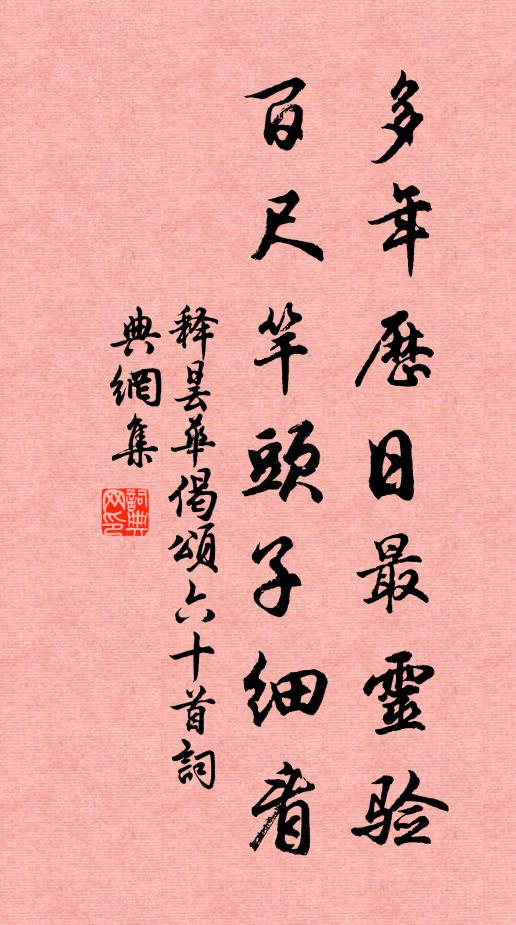 多年歷日最靈验
百尺竿頭子細看
释曇華偈頌六十首詞
典網集
詞典网印